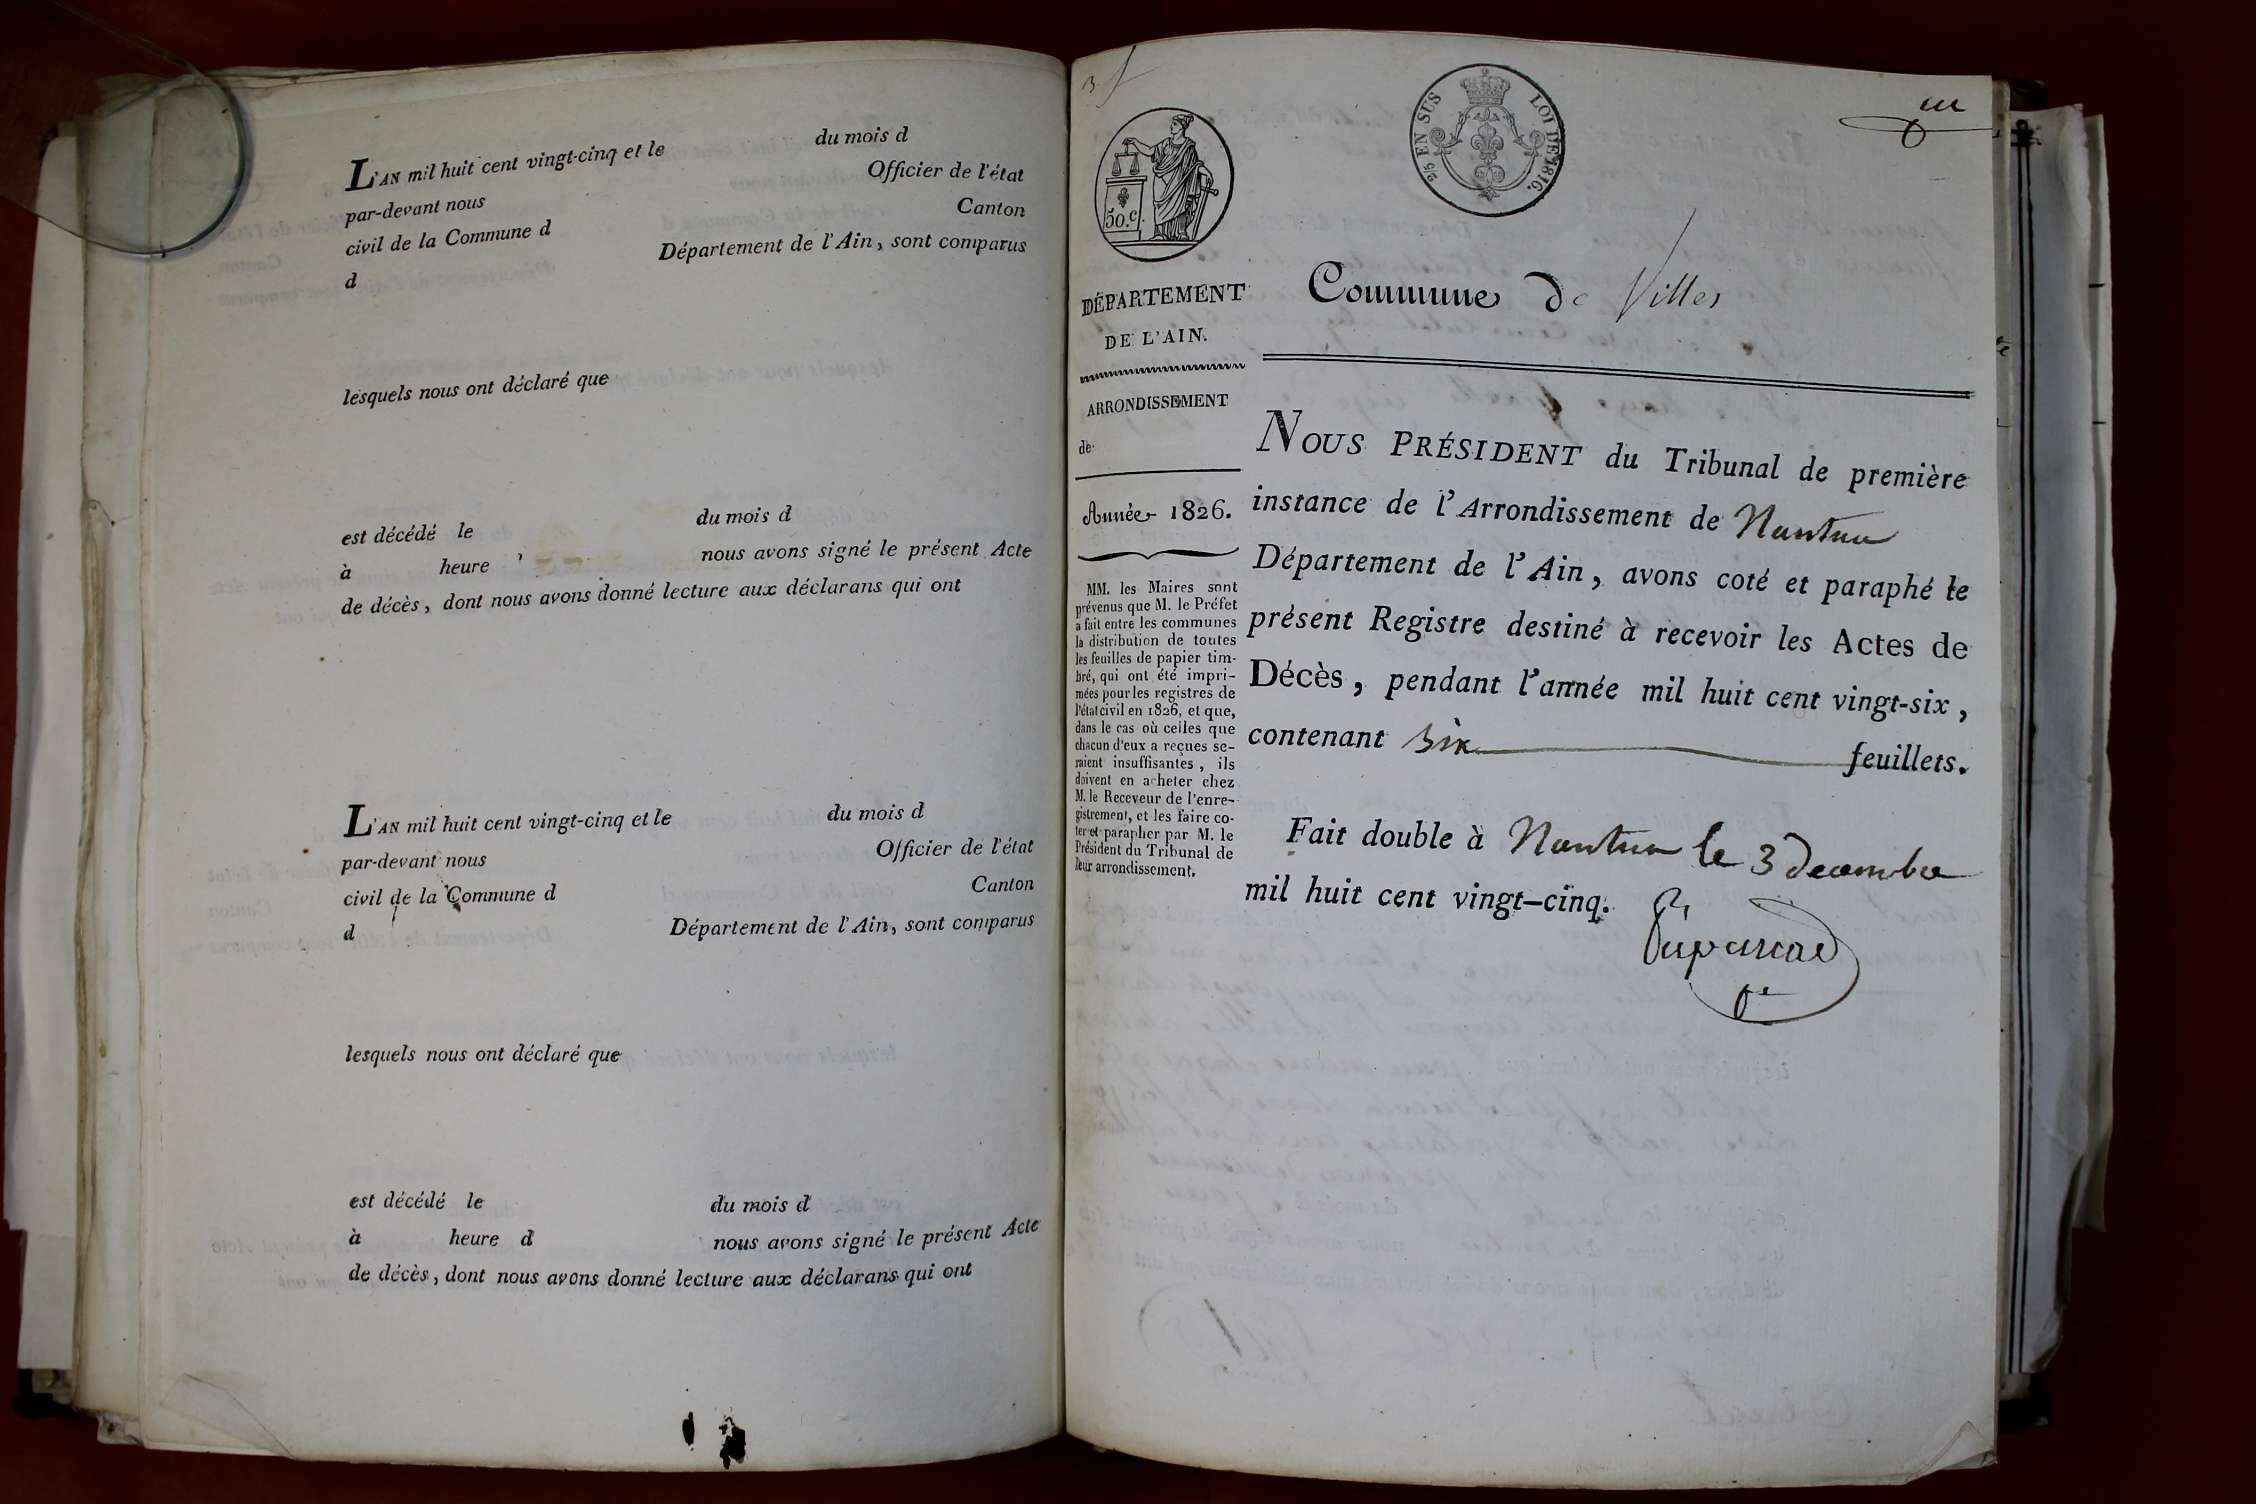 L'AN mil huit cent vingt-cinq et le du mois d
par-devant nous Officier de l'état
civil de la Commune d Canton
d Département de l'Ain, sont comparus
lesquels nous ont déclaré que
est décédé le du mois d
à heure nous avons signé le présent Acte
de décès, dont nous avons donné lecture aux déclarans qui ont
L'AN mil huit cent vingt-cinq et le du mois d
par-devant nous Officier de l'état
civil de la Commune d Canton
d Département de l'Ain, sont comparus
lesquels nous ont déclaré que
est décédé le du mois d
à heure d nous avons signé le présent Acte
de décès, dont nous avons donné lecture aux déclarans qui ont
50.c
EN SUS LOI DE 1816.
DÉPARTEMENT
DE L'AIN.
ARRONDISSEMENT
de
Année 1826.
MM. les Maires sont
prévenus que M. le Préfet
a fait entre les communes
la distribution de toutes
les feuilles de papier tim-
bré, qui ont été impri-
mées pour les registres de
l'état civil en 1826, et que,
dans le cas où celles que
chacun d'eux a reçues se-
raient insuffisantes, ils
doivent en acheter chez
M. le Receveur de l'enre-
gistrement, et les faire co-
ter et parapher par M. le
Président du Tribunal de
leur arrondissement.
Commune de Villes
NOUS PRÉSIDENT du Tribunal de première
instance de l'Arrondissement de Nantua
Département de l'Ain, avons coté et paraphé le
présent Registre destiné à recevoir les Actes de
Décès, pendant l'année mil huit cent vingt-six,
contenant six feuillets.
Fait double à Nantua le 3 decembre
mil huit cent vingt-cinq.